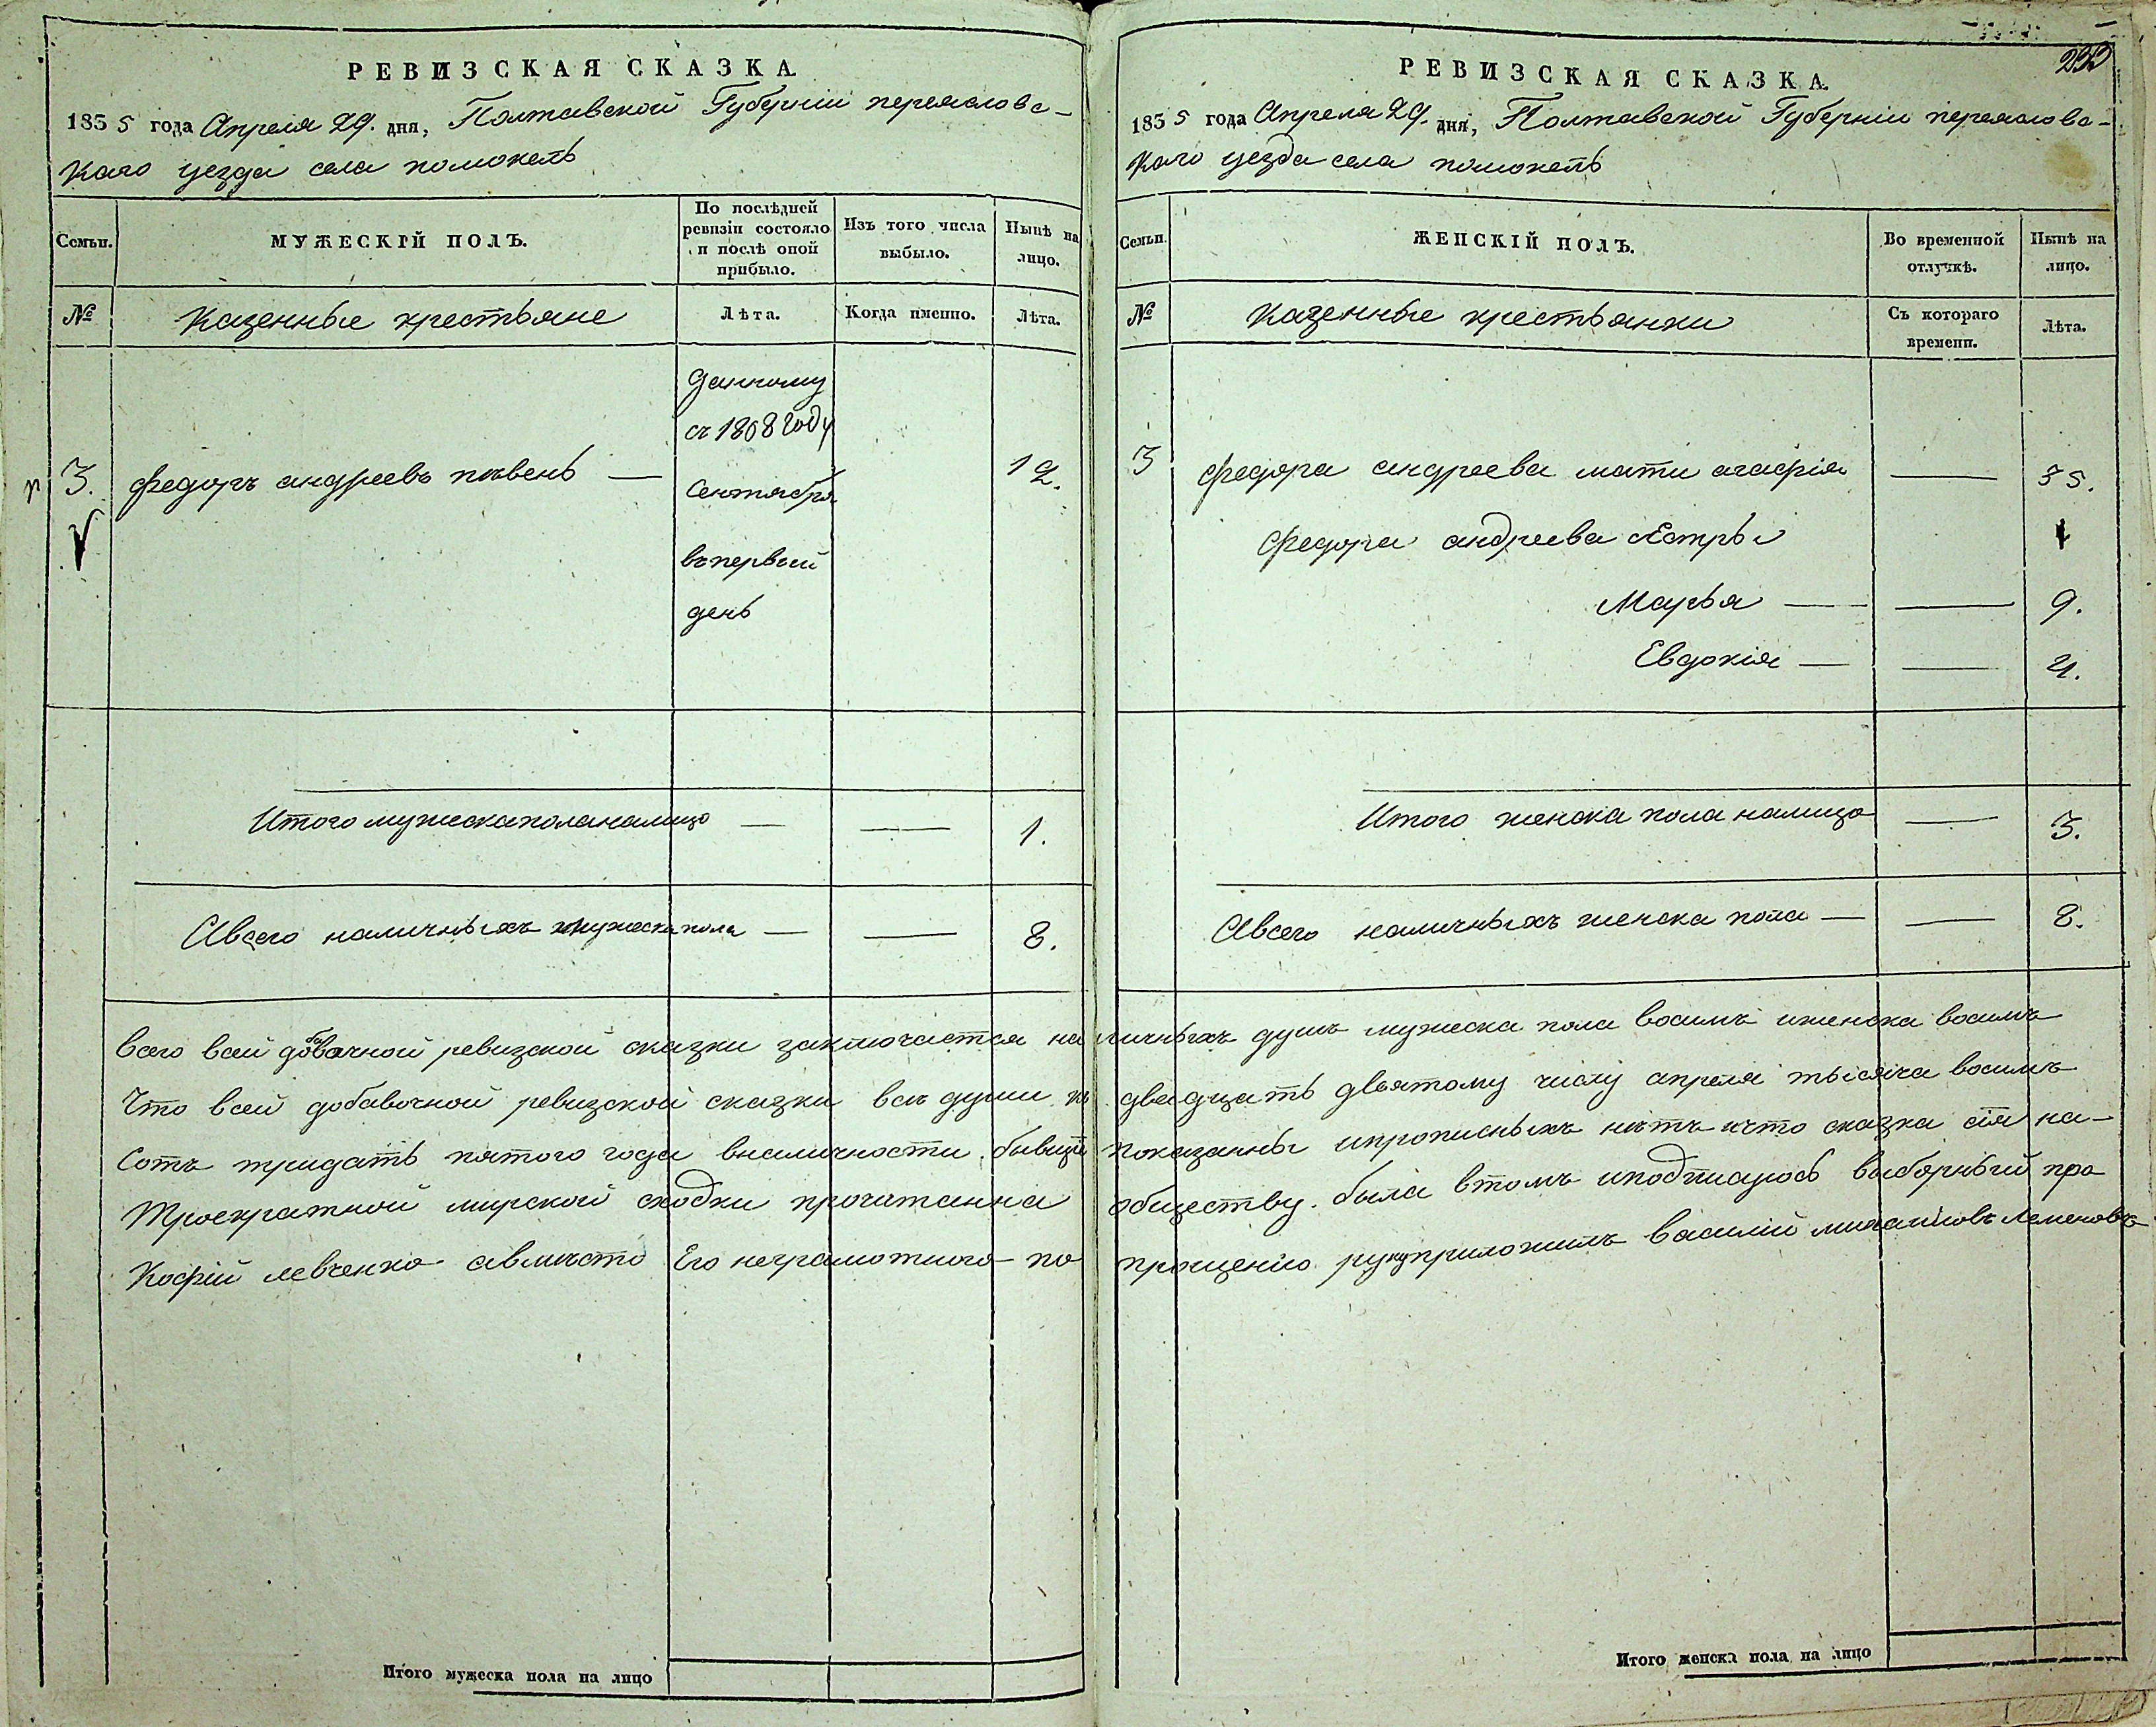 РЕВИЗСКАЯ СКАЗКА
1835 года Апреля 29. дня, Полтавской Губерніи переяславс-
каго уезда села помоклѣ
Семьи.
МУЖЕСКІЙ ПОЛЪ.
По послѣдней
ревизіи состояло
и послѣ оной
прибыло.
Изъ того числа
выбыло.
Нынѣ на
лицо.
№
Казенные крестьяне
Лѣта.
Когда именно.
Лѣта.
3.
федоръ андреевъ пѣвень —
данному
съ 1808 году
Сентября
въпервый
день
12.
Итого мужескаполаналицо — — 1.
Авсего наличныхъ мужескапола — — 8.
РЕВИЗСКАЯ СКАЗКА.
1835 года Апреля 29. дня, Полтавской Губерніи переяславс-
каго уезда села
Семьи.
ЖЕНСКІЙ ПОЛЪ.
Во временной
отлучкѣ.
Нынѣ на
лицо.
№
Казенные крестьянки
Съ котораго
времени.
Лѣта.
3
федора андреева мати агафія — 35.
федора андреева сестры
Марья — — 9.
Евдокія — — 4.
Итого женска пола налицо — 3.
Авсего наличныхъ женска пола — — 8.
всего всей добавочной ревизской сказки заключается наличныхъ душъ мужеска пола восимъ иженска восимъ
Что всей добавочной ревизской сказки всѣ души къ двадцать двятому числу апреля тысяча восимъ
сотъ тридать пятого года вналичности бывшіи показанны ипрописныхъ нѣтъ ичто сказка сія на-
троекратной мирской сходки прочитанна обществу. была втомъ иподписуюсь выборный про
кофій левченко авмѣсто Его неграмотного по прошенію рукуприложилъ василій михайловъ
Итого мужеска пола на лицо
Итого женска пола на лицо